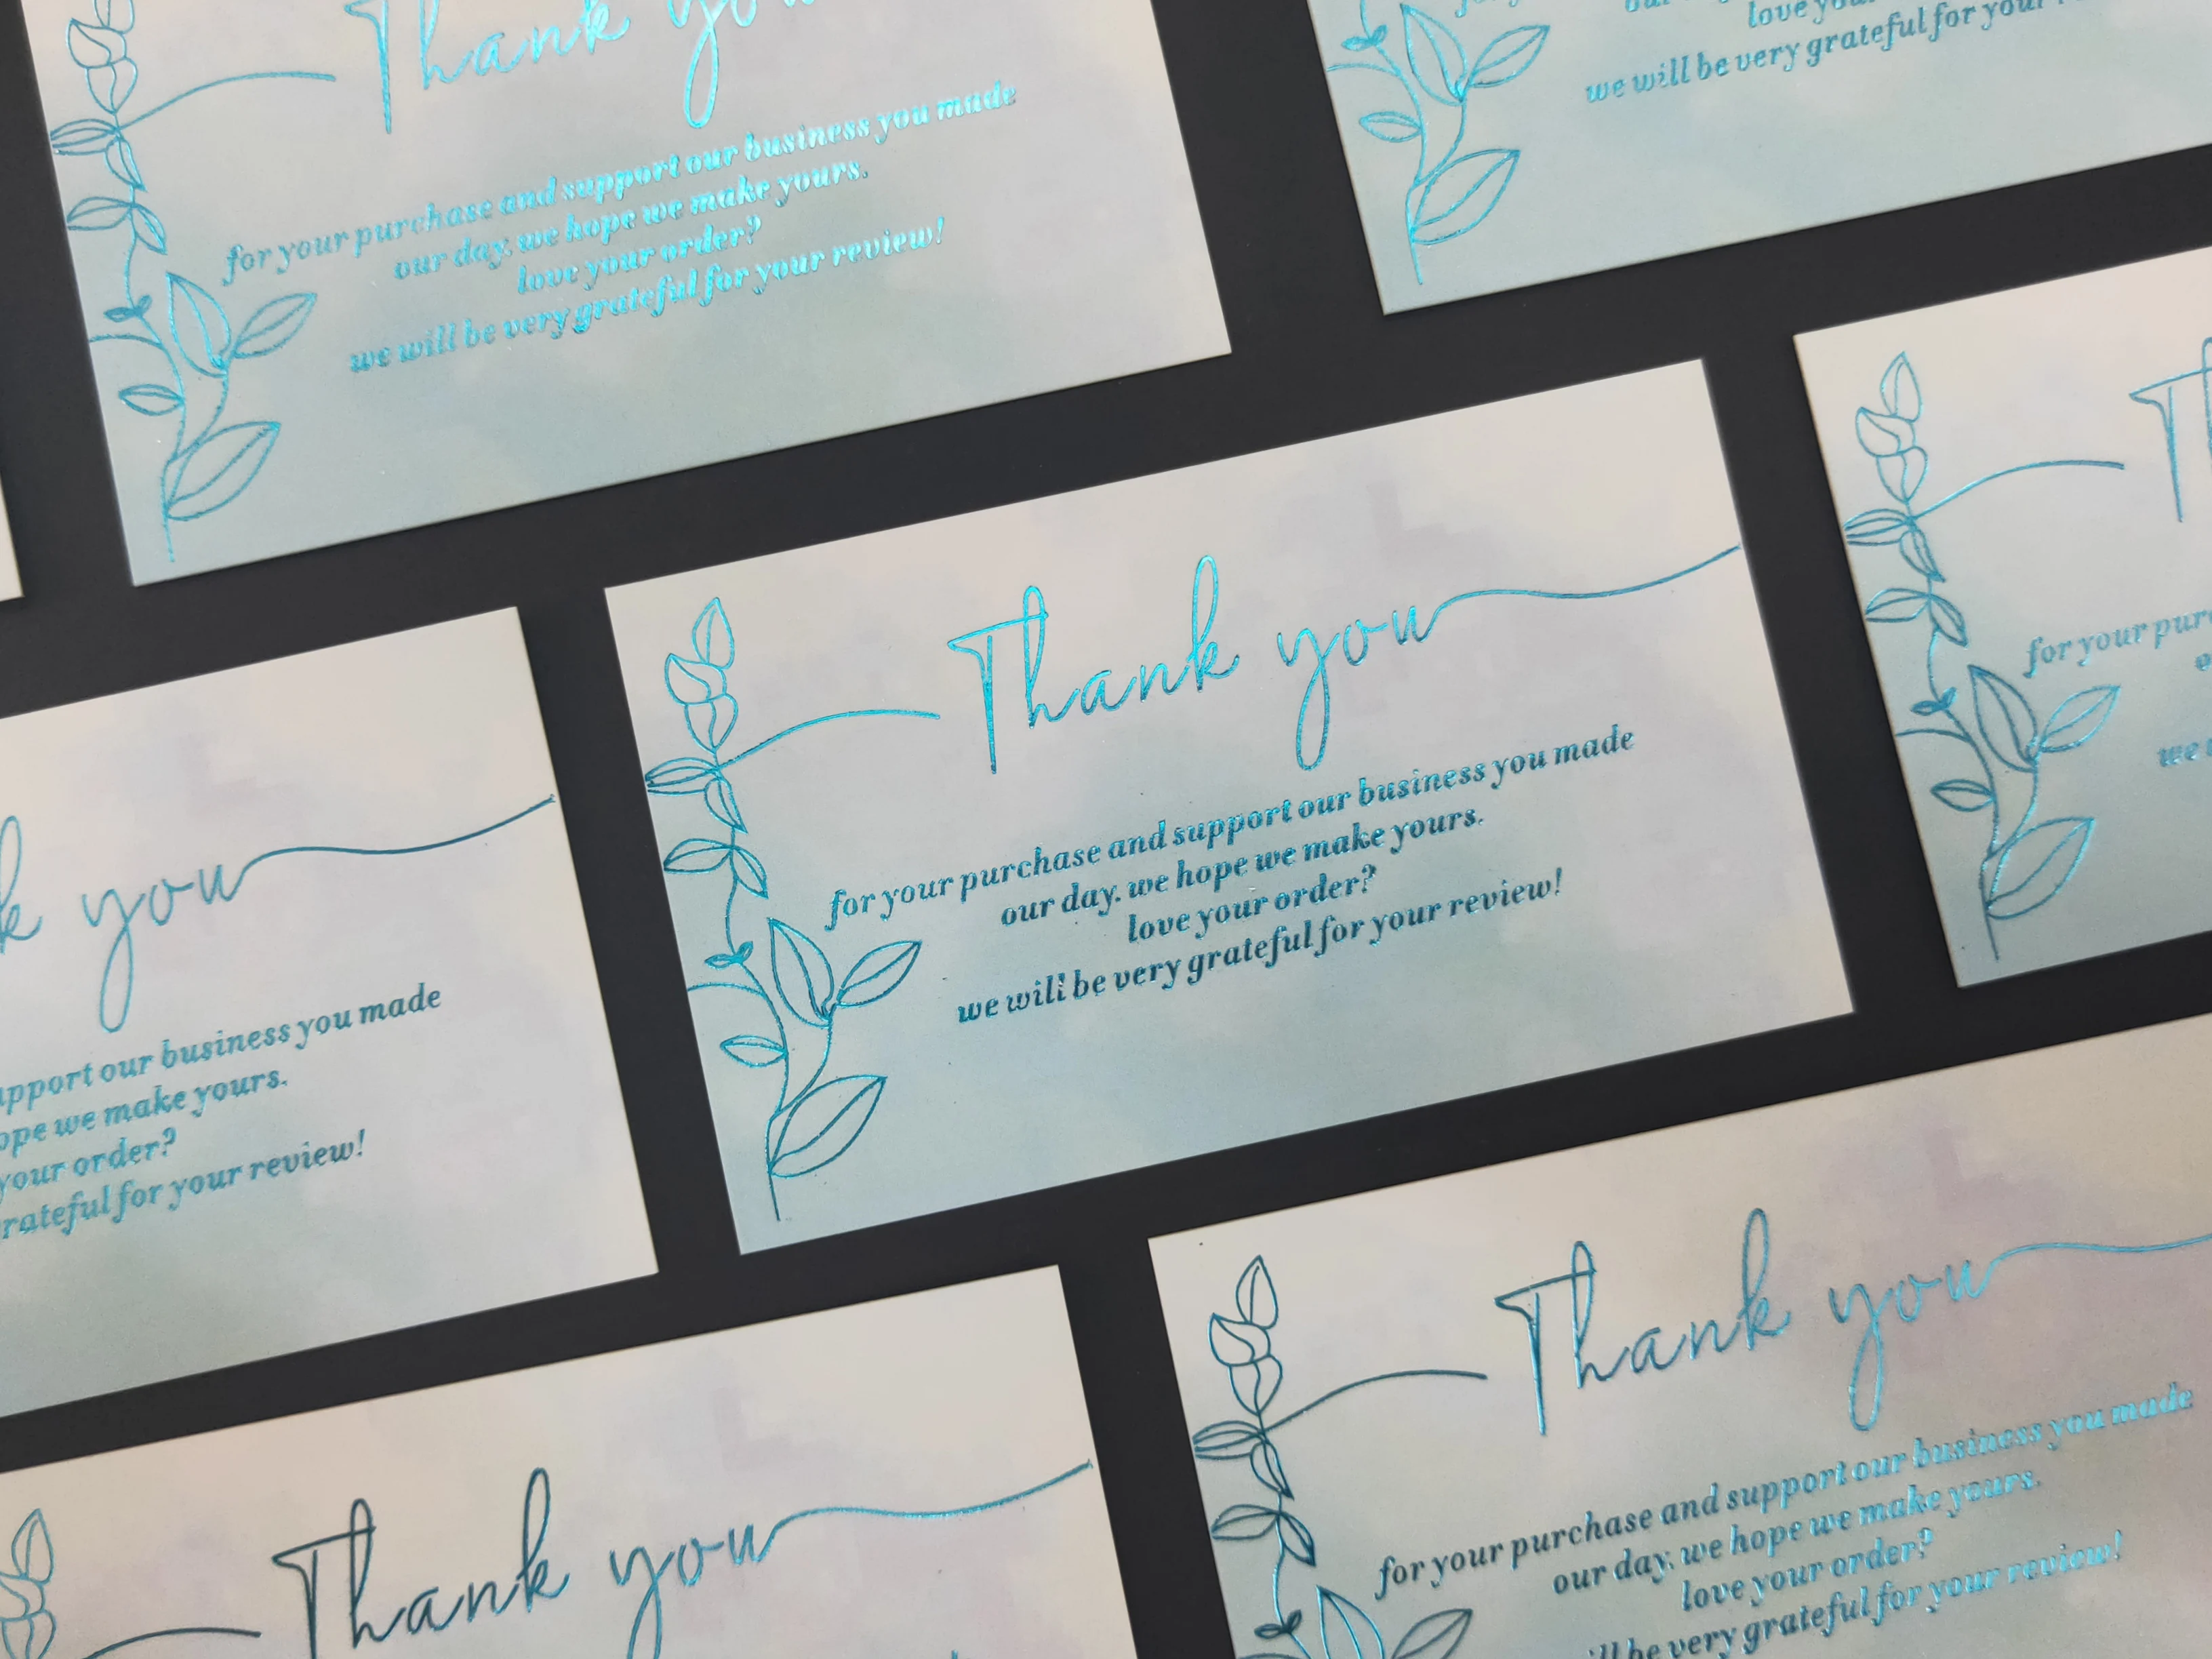 Thank you
for your purchase and support our business you made
our day. we hope we make yours.
love your order?
we will be very grateful for your review!
love your
we will be very grateful for your
Thank you
for your purchase and support our business you made
our day. we hope we make yours.
love your order?
we will be very grateful for your review!
for your
we
k you
support our business you made
hope we make yours.
your order?
grateful for your review!
Thank you
Thank you
for your purchase and support our business you made
our day. we hope we make yours.
love your order?
will be very grateful for your review!